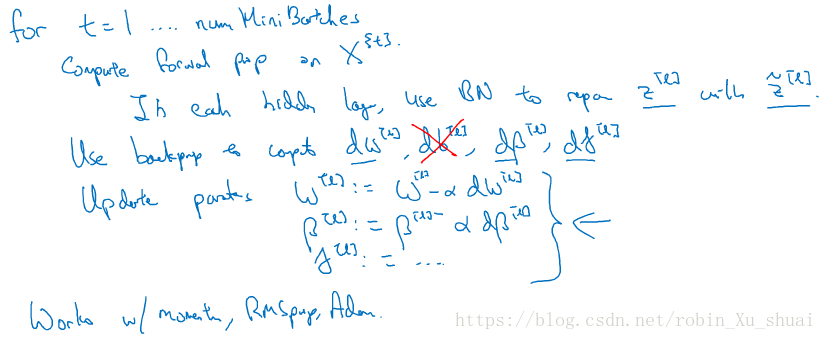 for t=1 .... num Mini Batches
Compute forward prop on X^{t}.
In each hidden layer, use BN to repar z^[l] with z̃^[l].
Use backprop to compute dw^[l], db^[l], dβ^[l], dγ^[l]
Update params w^[l] := w^[l] - α dw^[l]
β^[l] := β^[l] - α dβ^[l] ←
γ^[l] := ....
Works w/ momentum, RMSprop, Adam.
https://blog.csdn.net/robin_Xu_shuai